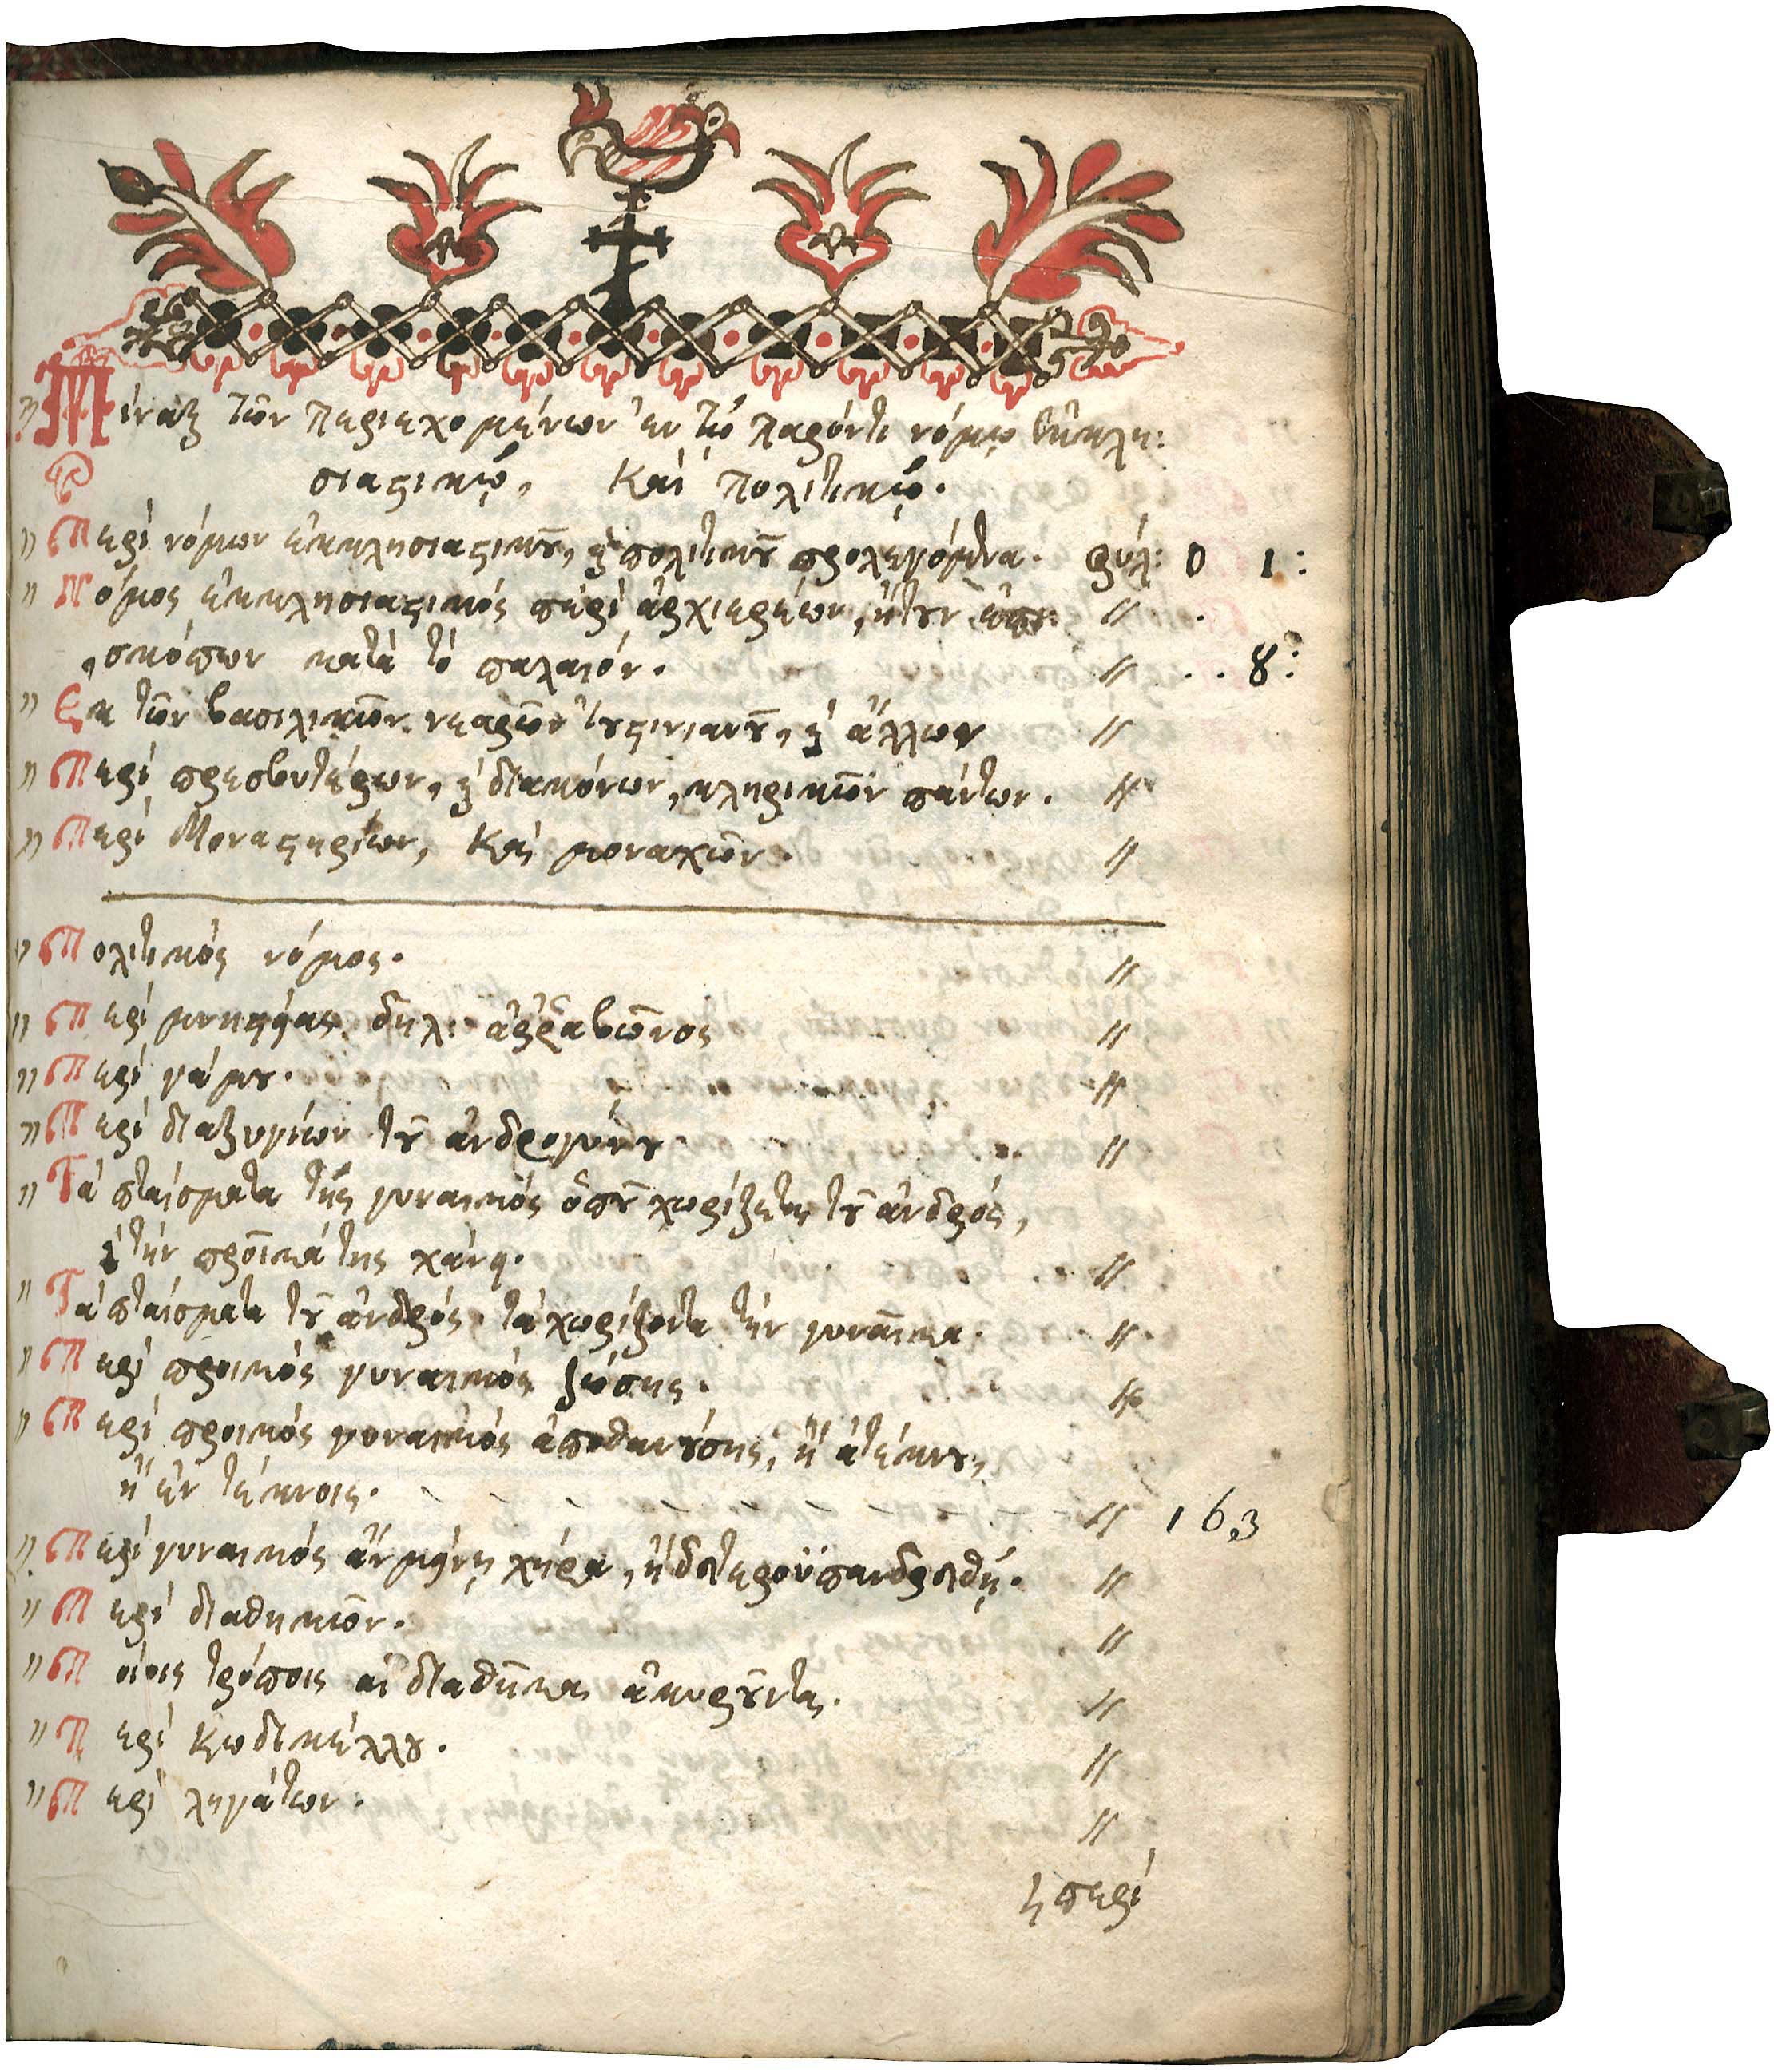 Πίναξ τῶν περιεχομένων ἐν τῷ παρόντι νόμῳ ἐκκλη:
σιαστικῷ, Καὶ πολιτικῷ.
" Περὶ νόμων ἐκκλησιαστικοῦ, ϗ πολιτικοῦ προλεγόμενα. φύλ: 0 1:
" Νόμος ἐκκλησιαστικός περὶ ἀρχιερέων, ἤτουν ἐπι: "
,σκόπων κατὰ τὸ παλαιόν. " . . 8:
" Εκ τῶν βασιλικῶν νεαρῶν ἰουστινιανοῦ, ϗ ἄλλων "
" Περὶ πρεσβυτέρων, ϗ διακόνων, κληρικῶν πάντων. "
" Περὶ Μοναστηρίων, Καὶ μοναχῶν. "
" Πολιτικός νόμος. "
" Περὶ μνηστείας δηλ: ἀῤῥαβῶνος "
" Περὶ γάμου. "
" Περὶ διαζυγίων τοῦ ἀνδρογύνου. "
" Τὰ πταίσματα τῆς γυναικός ὁποῦ χωρίζεται τοῦ ἀνδρός,
ϗ τὴν προῖκά της χάνει. "
" Τὰ πταίσματα τοῦ ἀνδρός τὰ χωρίζοντα τὴν γυναῖκα. "
" Περὶ προικός γυναικός ζώσης. "
" Περὶ προικός γυναικός ἀποθανούσης, ἢ ἀτέκνου,
ἢ ἐν τέκνοις. " 163
" Περὶ γυναικός ἂν μείνῃ χήρα, ἢ δευτεροϋπανδρευθῇ. "
" Περὶ διαθηκῶν. "
" Ποίοις τρόποις αἱ διαθῆκαι ἀκυροῦνται. "
" Περὶ Κωδικέλλου. "
" Περὶ ληγάτων. "
περὶ